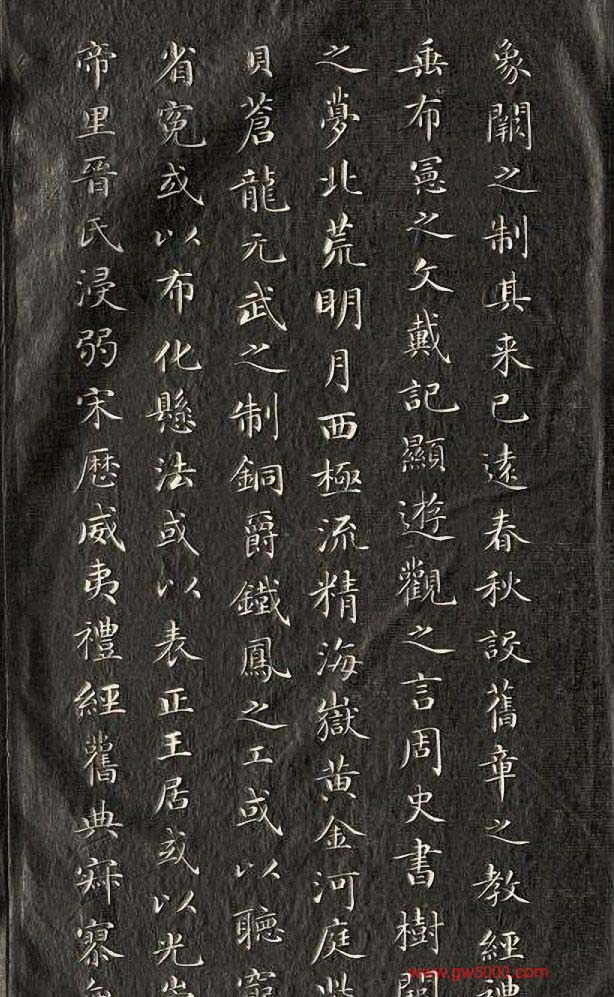 象闕之制其来已遠春秋設舊章之教經禮
垂布憲之文戴記顯遊觀之言周史書樹闕
之夢北荒明月西極流精海嶽黄金河庭紫
貝蒼龍元武之制銅爵鐵鳳之工或以聽窮
省寃或以布化懸法或以表正王居或以光崇
帝里晉氏浸弱宋歷威夷禮經舊典寂寥
www.gw5000.com